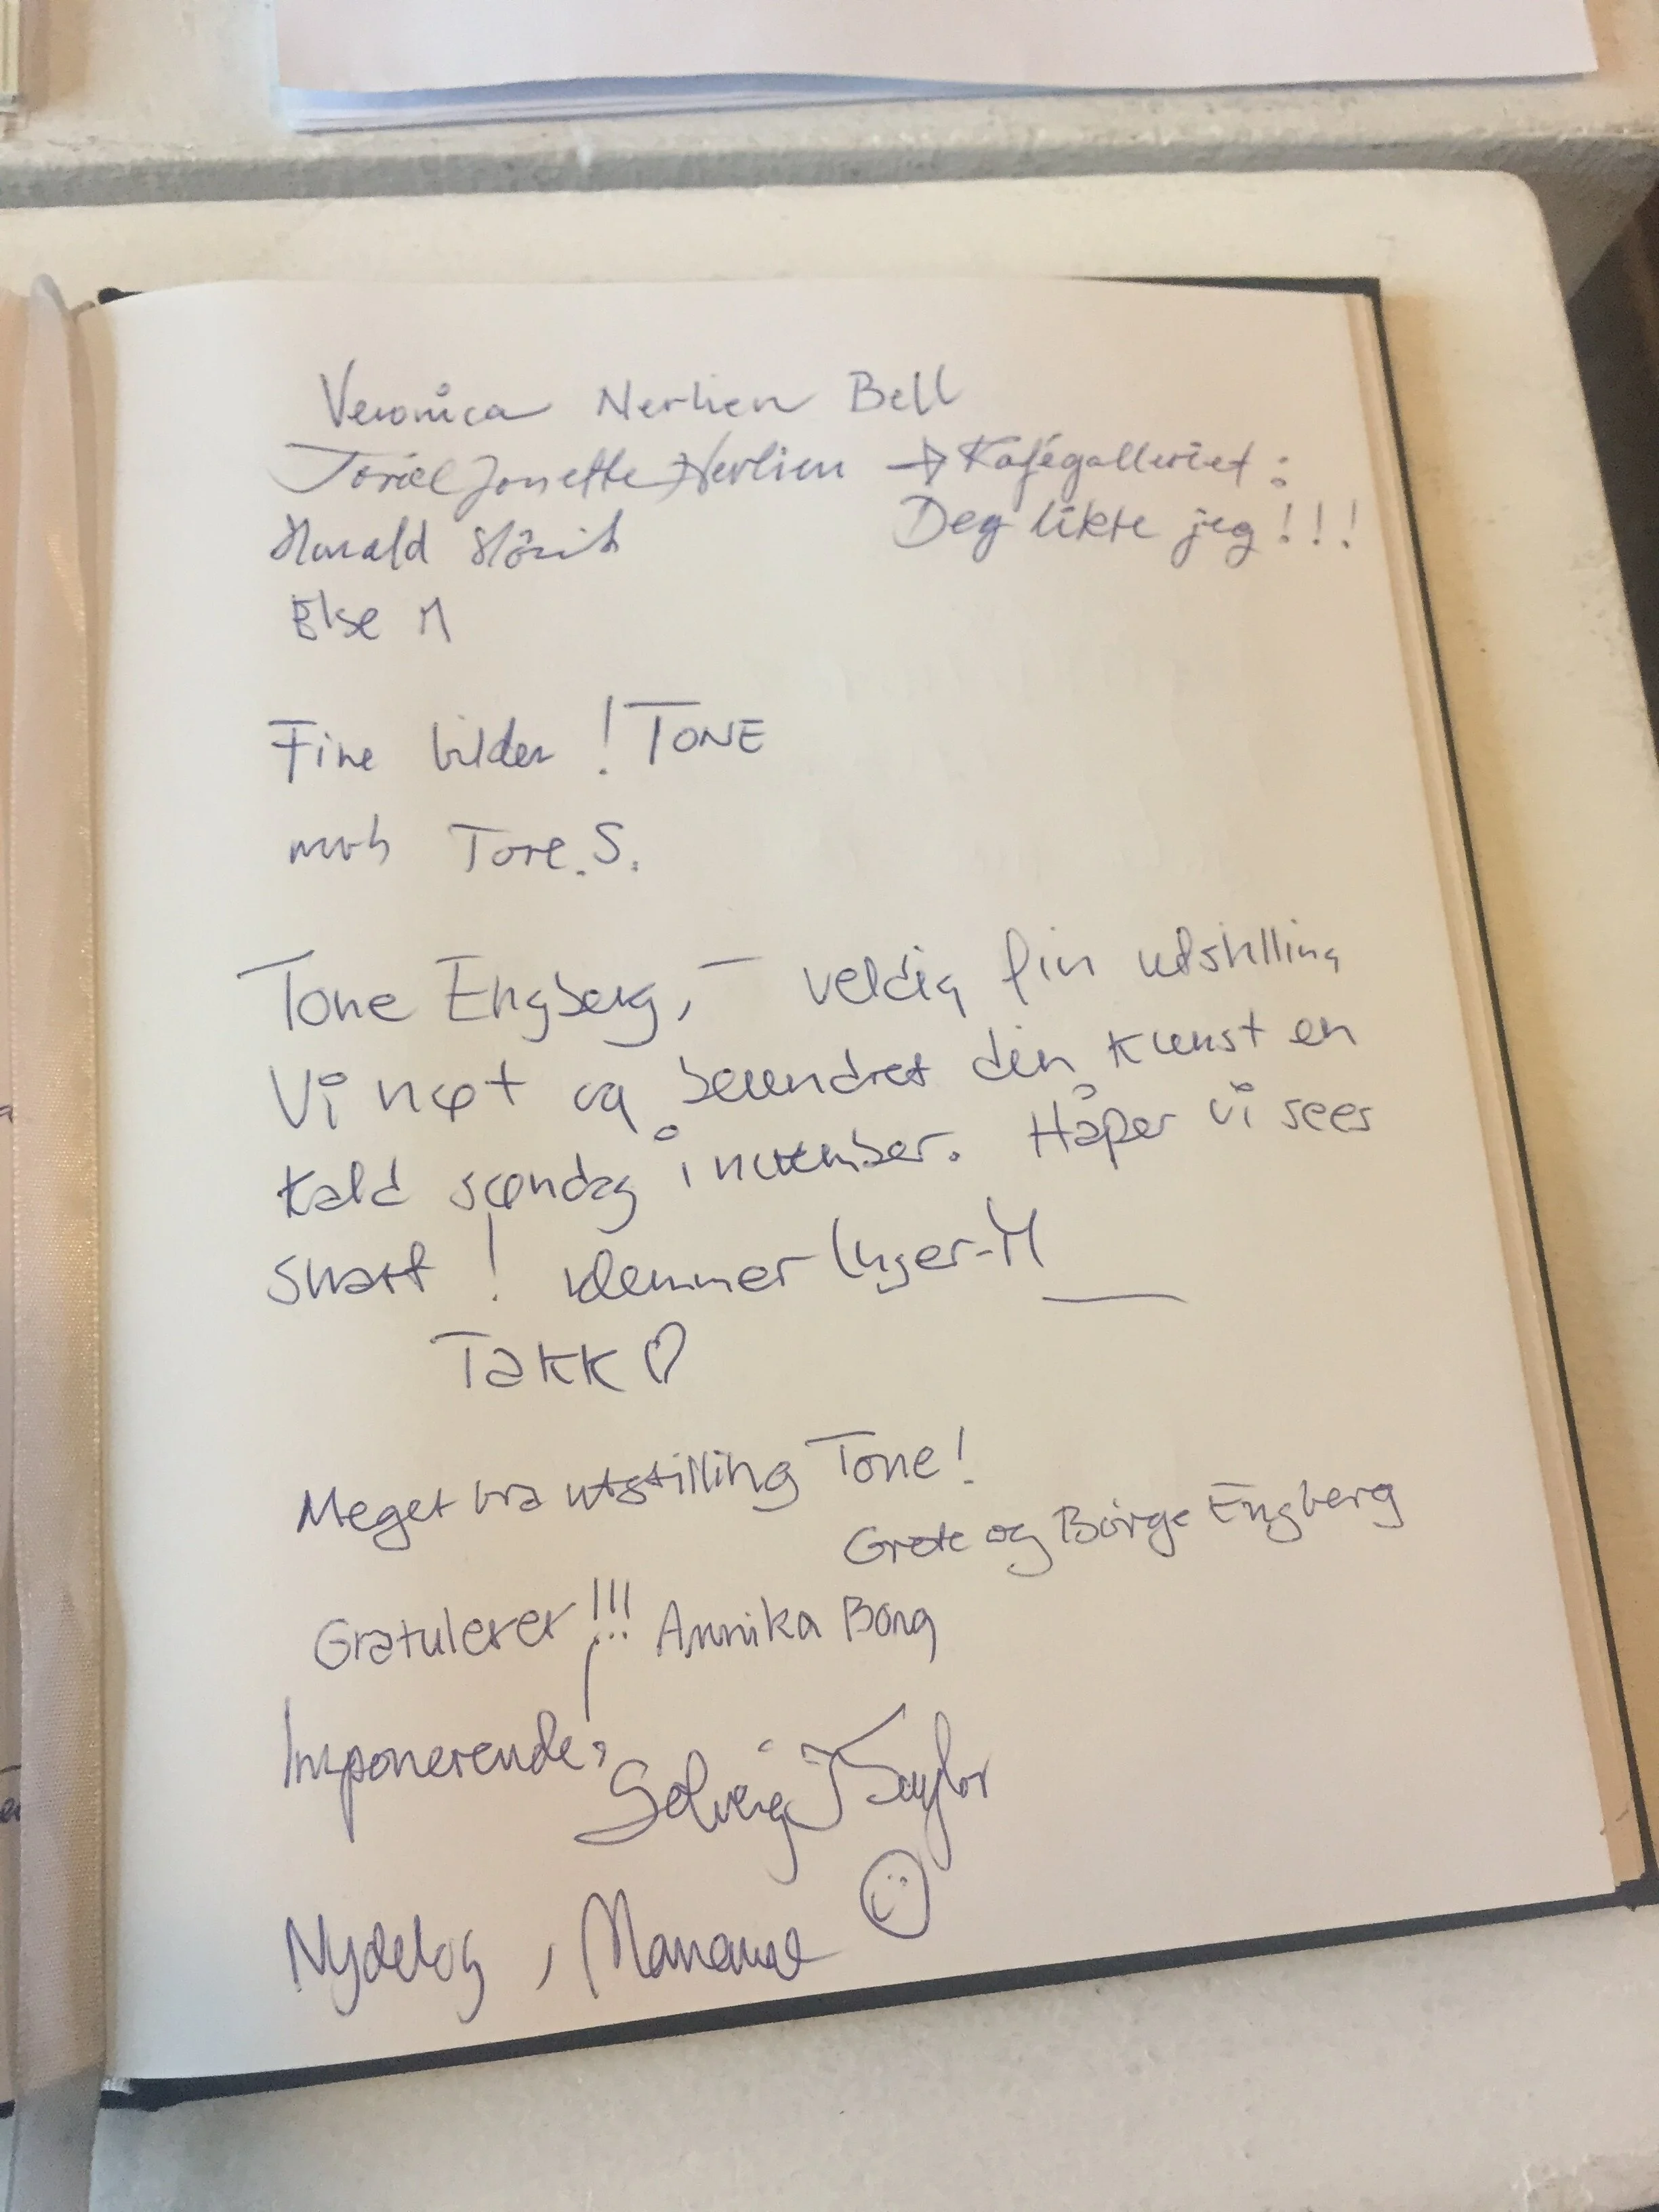 Veronica Nerlien Bell
Toril Jonette Nerlien → Kafégalleriet:
Deg likte jeg!!!
Harald
Else M
Fine bilder! TONE
mvh Tore.S.
Tone Engberg, – veldig fin utstilling
Vi nøt og beundret din kunst en
kald søndag i november. Håper vi sees
snart! klemmer Inger-M
Takk ♡
Meget bra utstilling Tone!
Grete og Börge Engberg
Gratulerer!!! Annika Borg
Imponerende, Solveig J Taylor
Nydelig, Marianne ☺